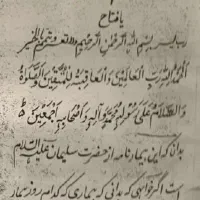 یا فتاح
رب یسر بسم الله الرحمن الرحیم و تمم بالخیر
الحمد لله رب العالمین والعاقبة للمتقین والصلوة
والسلام علی محمد وآله واصحابه اجمعین
بدانکه این بیمار نامه از حضرت سلیمان علیه السلام
است اگر خواهی که بدانی که بیماری که کدام روز بیمار